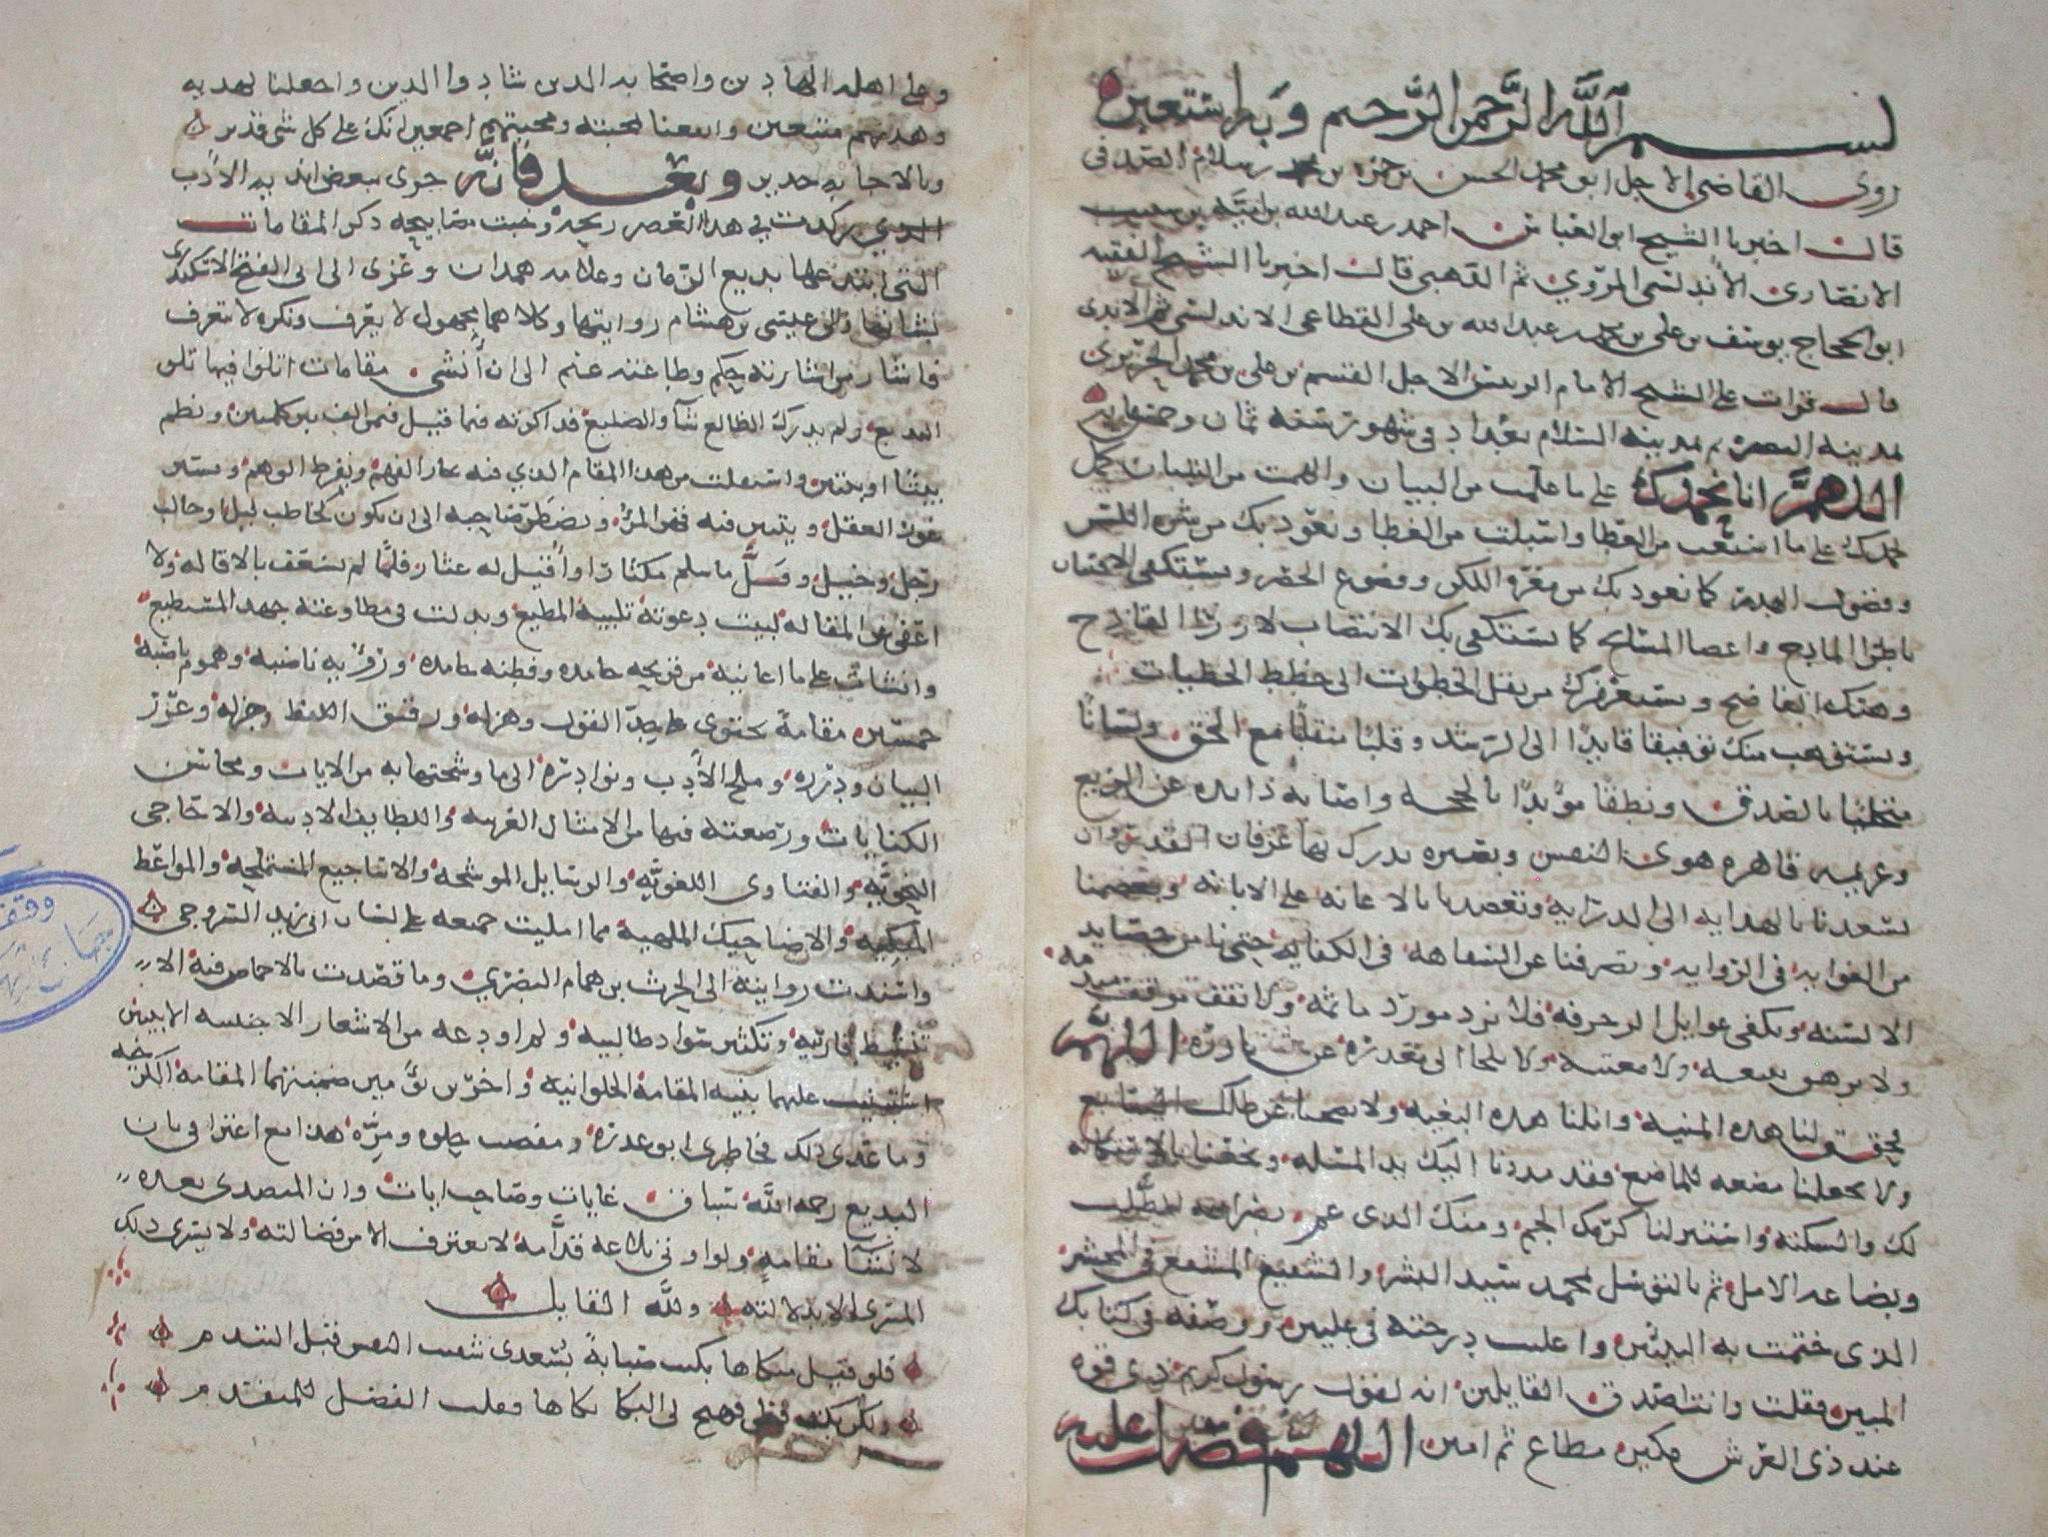 بسم الله الرحمن الرحيم وبه استعين
روى القاضي الاجل ابو محمد الحسن بن حمزه بن محمد بن سلام الصدفي
قال اخبرنا الشيخ ابو العباس احمد بن عبد الله بن
الانصاري الأندلسي المروي ثم الذهبي قال اخبرنا الشيخ الفقيه
ابو الحجاج يوسف بن علي بن محمد بن عبد الله بن علي القضاعي الاندلسي ثم الأندي
قال قرات على الشيخ الامام الرييس الاجل القسم بن علي بن محمد الحريري
بمدينه السلام بغداد في شهور سنه ثمان وخمسمايه
اللهم انا نحمدك على ما علمت من البيان والهمت من التبيان كما
نحمدك على ما اسبغت من العطا واسبلت من الغطا ونعوذ بك من شره اللسن
وفضول الهذر كما نعوذ بك من معره اللكن وفضوح الحصر ونستكفي الافتتان
باطرا المادح واغضا المسامح كما نستكفي بك الانتصاب لازرا القادح
وهتك الفاضح ونستغفرك من نقل الخطوات الى خطط الخطيات
ونستوهب منك توفيقا قايدا الى الرشد وقلبا متقلبا مع الحق ولسانا
متحليا بالصدق ونطقا مؤيدا بالحجه واصابه ذايده عن الزيغ
وعزيمه قاهره هوى النفس وبصيره ندرك بها عرفان القدر وان
تسعدنا بالهدايه الى الدرايه وتعضدنا بالاعانه على الابانه وتعصمنا
من الغوايه في الروايه وتصرفنا عن السفاهه في الفكاهه حتى نامن حصايد
الالسنه ونكفى غوايل الزخرفه فلا نرد مورد ماثمه ولا نقف موقف مندمه
ولا نرهق بتبعه ولا معتبه ولا نلجا الى معذره عن بادره اللهم
فحقق لنا هذه المنيه وانلنا هذه البغيه ولا تضحنا عن ظلك السابغ
ولا تجعلنا مضغه للماضغ فقد مددنا اليك يد المسله وبخعنا بالاستكانه
لك والمسكنه واستنزلنا كرمك الجم ومنك الذي عم بضراعه الطلب
وبضاعه الامل ثم بالتوسل بمحمد سيد البشر والشفيع المشفع في المحشر
الذي ختمت به النبيين واعليت درجته في عليين ووصفته في كتابك
المبين فقلت وانت اصدق القايلين انه لقول رسول كريم ذي قوه
عند ذي العرش مكين مطاع ثم امين اللهم فصل عليه
وعلى اهله الهادين واصحابه الذين شادوا الدين واجعلنا لهديه
وهديهم متبعين وانفعنا بمحبته ومحبتهم اجمعين انك على كل شي قدير
وبالاجابه جدير وبعد فانه جرى ببعض انديه الأدب
الذي ركدت في هذا العصر ريحه وخبت مصابيحه ذكر المقامات
التي ابتدعها بديع الزمان وعلامه همدان وعزى الى ابي الفتح الاسكندري
نشاتها والى عيسى بن هشام روايتها وكلاهما مجهول لا يعرف ونكره لا تتعرف
فاشار من اشارته حكم وطاعته غنم الى ان أنشي مقامات اتلوا فيها تلو
البديع ولم يدرك الظالع شأو الضليع فذاكرته فيما قيل فيمن الف بين كلمتين ونظم
بيتا او بيتين واستقلت من هذا المقام الذي فيه يحار الفهم ويفرط الوهم ويسبر
غور العقل ويتبين فيه قيمه المرء ويضطر صاحبه الى ان يكون كحاطب ليل او جالب
رجل وخيل وقلّ ما سلم مكثار او اقيل له عثار فلما لم يسعف بالاقاله ولا
اعفى من المقاله لبيت دعوته تلبيه المطيع وبذلت في مطاوعته جهد المستطيع
وانشات على ما اعانيه من قريحه جامده وفطنه خامده ورويه ناضبه وهموم ناصبه
خمسين مقامة تحتوي على جد القول وهزله ورقيق اللفظ وجزله وغرر
البيان ودرره وملح الأدب ونوادره الى ما وشحتها به من الايات ومحاسن
الكنايات ورصعته فيها من الامثال العربيه واللطايف الادبيه والاحاجي
النحويه والفتاوى اللغويه والرسايل الموشحه والاساجيع المستملحه والمواعظ
المبكيه والاضاحيك الملهيه مما امليت جميعه على لسان ابي زيد السروجي
واسندت روايته الى الحرث بن همام البصري وما قصدت بالاحماض فيه الا
تنشيط قاريه وتكثير سواد طالبيه ولم اودعه من الاشعار الاجنبيه الا بيتين
عليهما بنيه المقامه الحلوانيه واخرين توءمين ضمنتهما المقامه الكرجيه
وما عدى ذلك فخاطري ابو عذره ومقتضب حلوه ومره هذا مع اعترافي بان
البديع رحمه الله سباق غايات وصاحب ايات وان المتصدي بعده
لانشآ مقامه ولو اوتي بلاغه قدامه لا يغترف الا من فضالته ولا يسري ذلك
المسرى الا بدلالته ولله القايل
فلو قبل مبكاها بكيت صبابة بسعدى شفيت النفس قبل التندم
ولكن بكت قبلي فهيج لي البكا بكاها فقلت الفضل للمتقدم